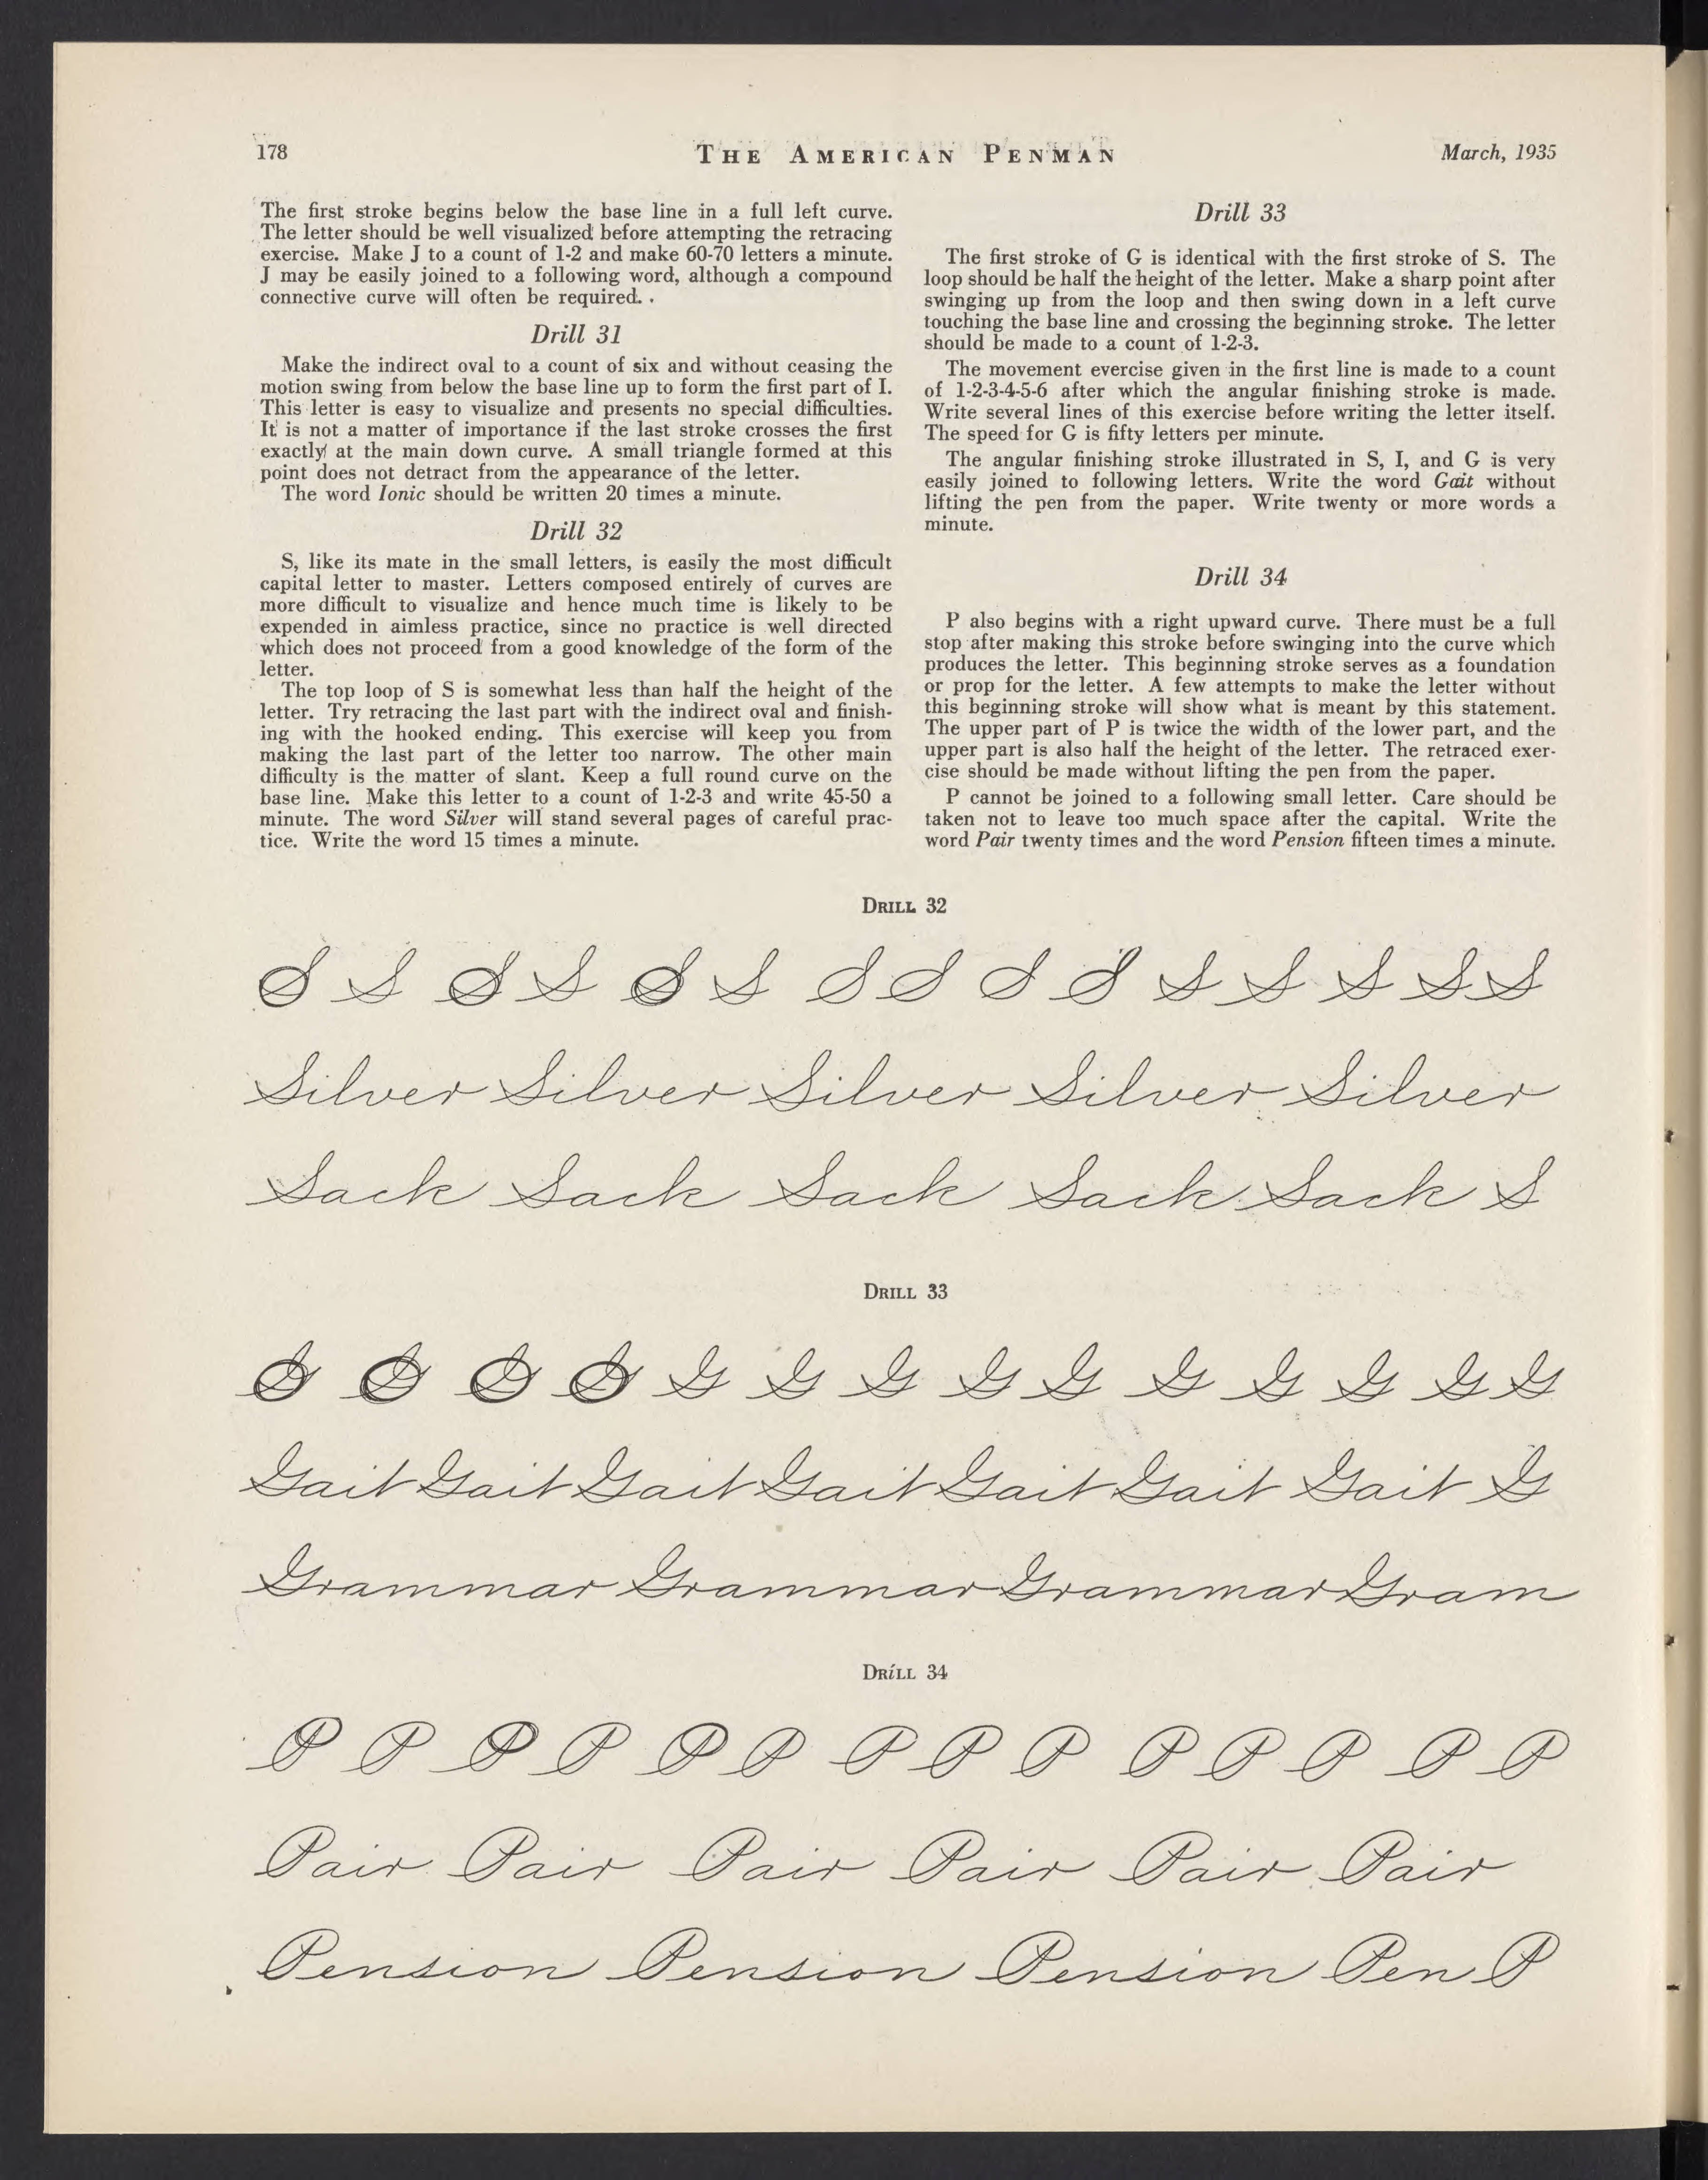 178
THE AMERICAN PENMAN
March, 1935
The first stroke begins below the base line in a full left curve.
The letter should be well visualized before attempting the retracing
exercise. Make J to a count of 1-2 and make 60-70 letters a minute.
J may be easily joined to a following word, although a compound
connective curve will often be required. .
Drill 31
Make the indirect oval to a count of six and without ceasing the
motion swing from below the base line up to form the first part of I.
This letter is easy to visualize and presents no special difficulties.
It is not a matter of importance if the last stroke crosses the first
exactly at the main down curve. A small triangle formed at this
point does not detract from the appearance of the letter.
The word Ionic should be written 20 times a minute.
Drill 32
S, like its mate in the small letters, is easily the most difficult
capital letter to master. Letters composed entirely of curves are
more difficult to visualize and hence much time is likely to be
expended in aimless practice, since no practice is well directed
which does not proceed from a good knowledge of the form of the
letter.
The top loop of S is somewhat less than half the height of the
letter. Try retracing the last part with the indirect oval and finish-
ing with the hooked ending. This exercise will keep you from
making the last part of the letter too narrow. The other main
difficulty is the matter of slant. Keep a full round curve on the
base line. Make this letter to a count of 1-2-3 and write 45-50 a
minute. The word Silver will stand several pages of careful prac-
tice. Write the word 15 times a minute.
Drill 33
The first stroke of G is identical with the first stroke of S. The
loop should be half the height of the letter. Make a sharp point after
swinging up from the loop and then swing down in a left curve
touching the base line and crossing the beginning stroke. The letter
should be made to a count of 1-2-3.
The movement evercise given in the first line is made to a count
of 1-2-3-4-5-6 after which the angular finishing stroke is made.
Write several lines of this exercise before writing the letter itself.
The speed for G is fifty letters per minute.
The angular finishing stroke illustrated in S, I, and G is very
easily joined to following letters. Write the word Gait without
lifting the pen from the paper. Write twenty or more words a
minute.
Drill 34
P also begins with a right upward curve. There must be a full
stop after making this stroke before swinging into the curve which
produces the letter. This beginning stroke serves as a foundation
or prop for the letter. A few attempts to make the letter without
this beginning stroke will show what is meant by this statement.
The upper part of P is twice the width of the lower part, and the
upper part is also half the height of the letter. The retraced exer-
cise should be made without lifting the pen from the paper.
P cannot be joined to a following small letter. Care should be
taken not to leave too much space after the capital. Write the
word Pair twenty times and the word Pension fifteen times a minute.
DRILL 32
S S S S S S S S S S S S S S S
Silver Silver Silver Silver Silver
Sack Sack Sack Sack Sack S
DRILL 33
G G G G G G G G G G G G G G
Gait Gait Gait Gait Gait Gait Gait G
Grammar Grammar Grammar Gram
DRILL 34
P P P P P P P P P P P P P P
Pair Pair Pair Pair Pair Pair
Pension Pension Pension Pen P